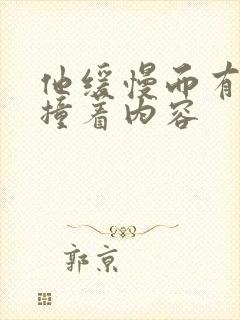 他缓慢而有
撞着内容
郭京